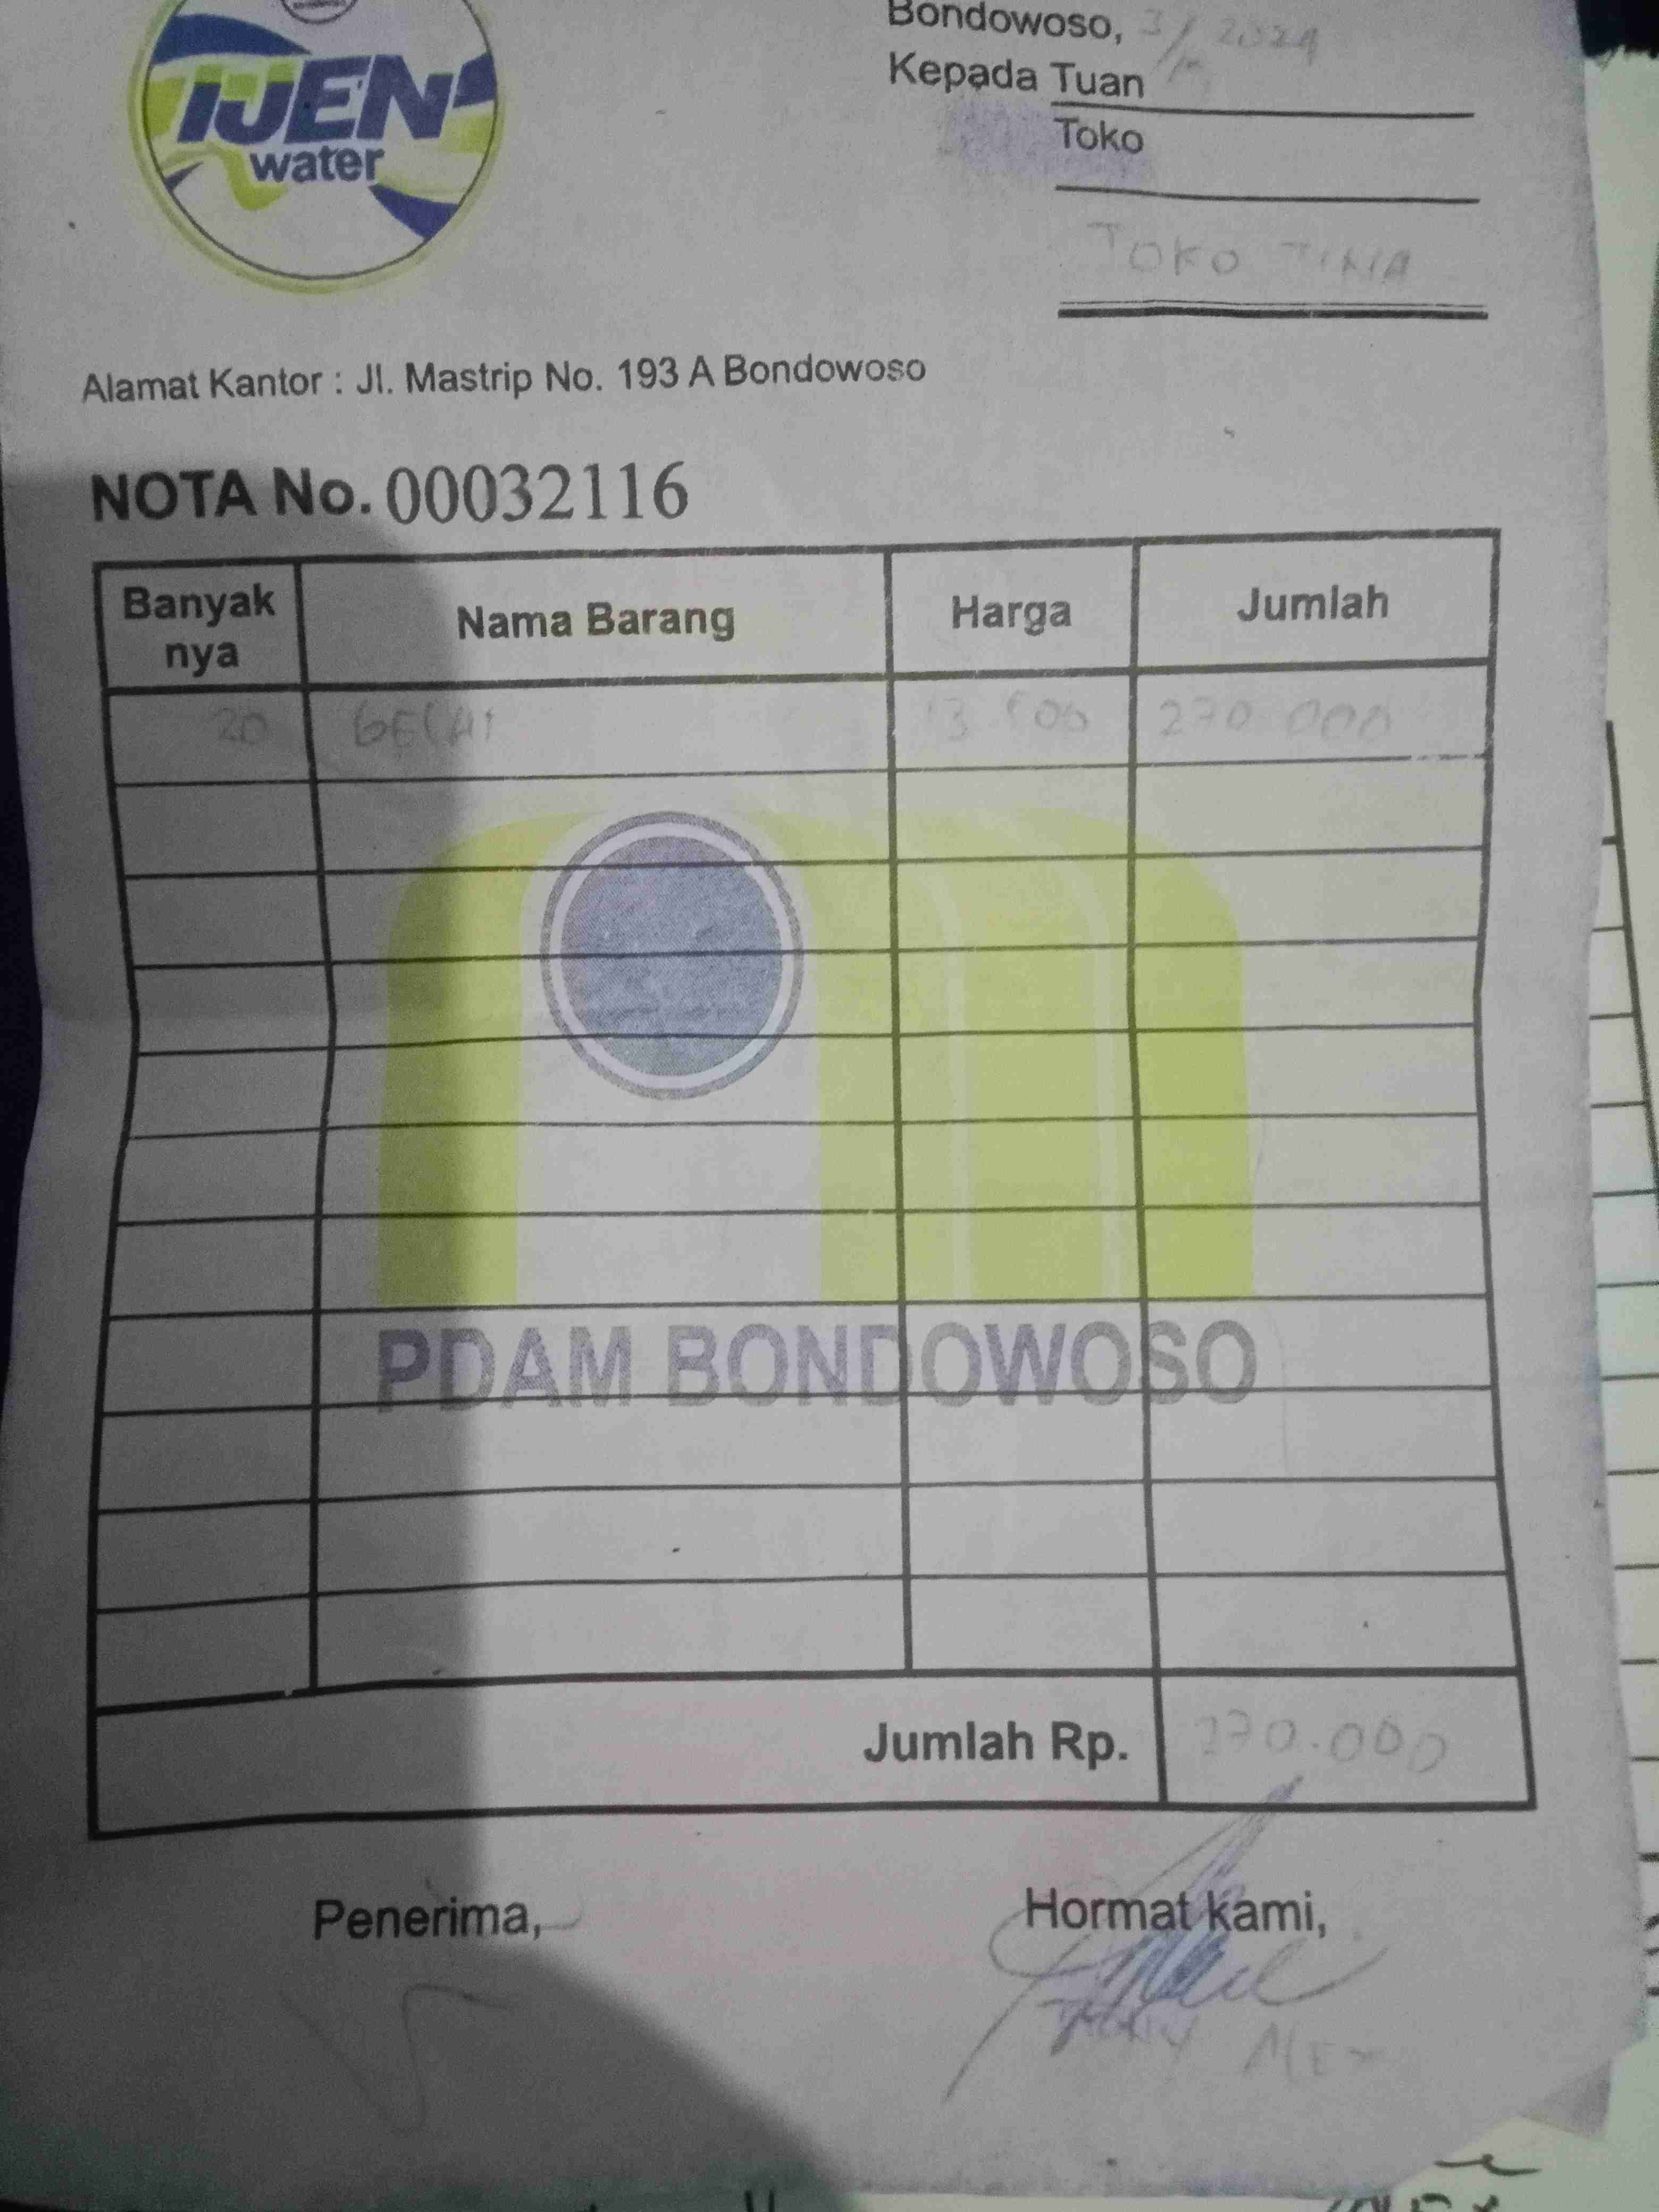 IJEN
water
Bondowoso, 3/ 2024
Kepada Tuan
Toko
TOKO TINA
Alamat Kantor : Jl. Mastrip No. 193 A Bondowoso
NOTA No. 00032116
Banyak nya Nama Barang Harga Jumlah
20 13 500 270 000
PDAM BONDOWOSO
Jumlah Rp. 270.000
Penerima, Hormat kami,